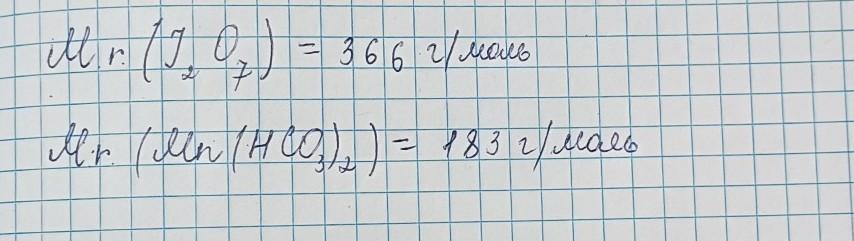 Mr. (J₂O₇) = 366 г/моль
Mr. (Mn(HCO₃)₂) = 183 г/моль